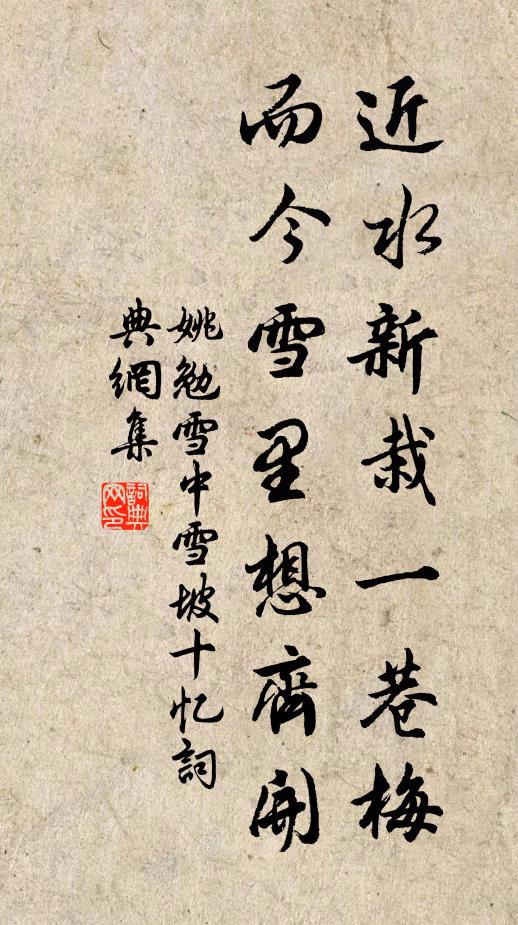 近水新栽一巷梅
而今雪里想齊開
姚勉雪中雪坡十忆詞
典網集
詞典网印